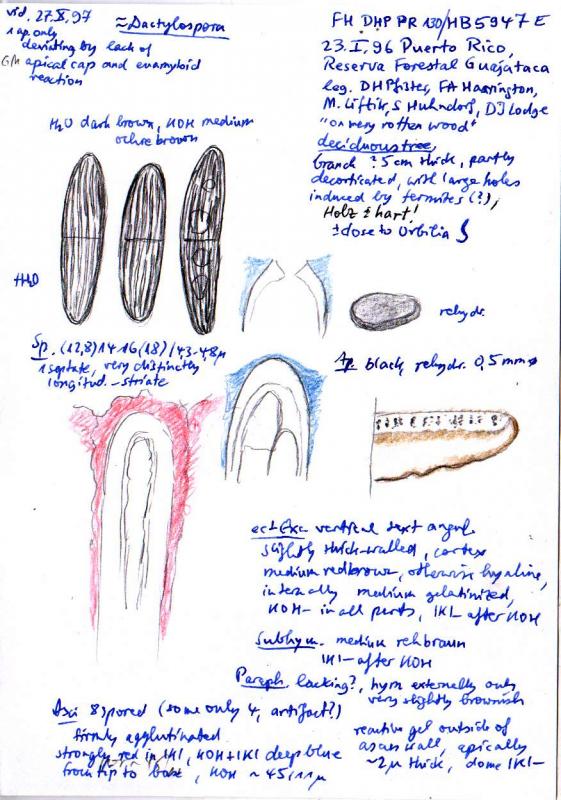 vid. 27.X.97
≈Dactylospora
1 ap. only
deviating by lack of
GM apical cap and euamyloid
reaction
FH DHP PR 130/HB5947E
23.I.96 Puerto Rico,
Reserva Forestal Guajataca
leg. DH Pfister, FA Harrington,
M. Liftik, S Huhndorf, DJ Lodge
"on very rotten wood"
deciduous tree,
branch ?5cm thick, partly
decorticated, with large holes
induced by termites (?),
Holz ± hart!
± close to Orbilia
H2O dark brown, KOH medium
ochre brown
H2O
rehydr.
Sp. (12,8)14-16(18)/43-48µ
1 septate, very distinctly
longitud.-striate
Ap. black, rehydr. 0,5mm ø
ect. Exc. vertical text. angul.
slightly thick-walled, cortex
medium redbrown, otherwise hyaline,
internally medium gelatinized,
KOH- in all parts, IKI- after KOH
Subhym. medium rehbraun
IKI- after KOH
Paraph. lacking?, hym externally only
very slightly brownish
Asci 8spored (some only 4, artifact?)
firmly agglutinated
strongly red in IKI, KOH+IKI deep blue
from tip to base, KOH ~45/11µ
reactive gel outside of
ascus wall, apically
~2µ thick, dome IKI-